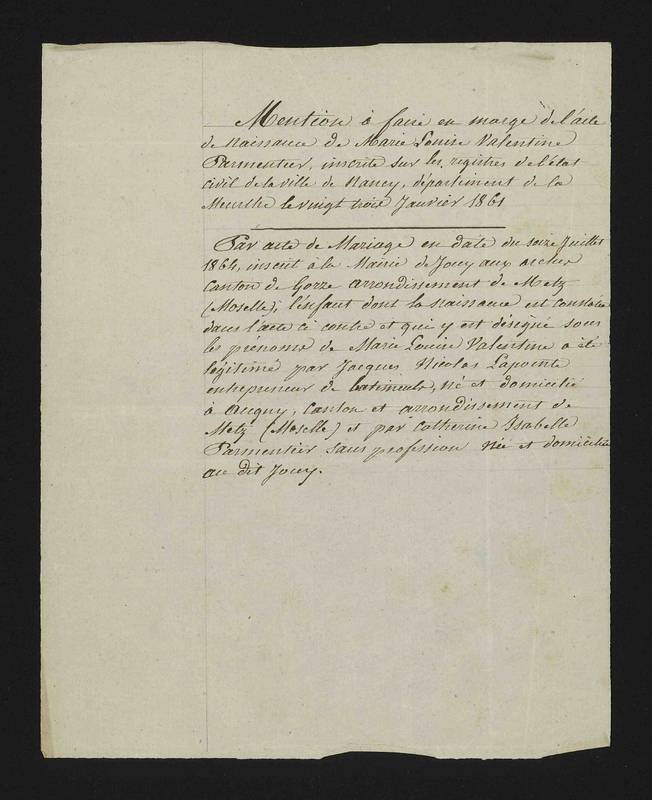 Mention à faire en marge de l'acte
de naissance de Marie Louise Valentine
Parmentier, inscrite sur les registres de l'état
civil de la ville de Nancy, département de la
Meurthe le vingt trois Janvier 1861
Par acte de Mariage en date du seize Juillet
1864, inscrit à la Mairie de Jouy aux arches
Canton de Gorze arrondissement de Metz
(Moselle), l'enfant dont la naissance est constatée
dans l'acte ci contre et qui y est désigné sous
les prénoms de Marie Louise Valentine a été
légitimé par Jacques Nicolas Lapointe
entrepreneur de batiments, né et domicilié
à Augny, Canton et arrondissement de
Metz (Moselle) et par Catherine Isabelle
Parmentier sans profession née et domiciliée
au dit Jouy.